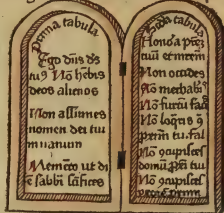 Prima tabula
Ego dn̄s ds̄
tuꝰ Nō hēbis
deos alienos
Non assūmes
nomen dei tui
in uanum
Memēto ut di
ē sabbi̅ sc̄ifices
Scda tabula
Honōa pr̄ez
tuū et mrēm
Non occides
Nō mechabꝭ
Nō furtū faꝯ
Nō loqr̄is ꝯ
tuū. fal
Nō ꝯcupisces
domū tui
Nō ꝯcupisces